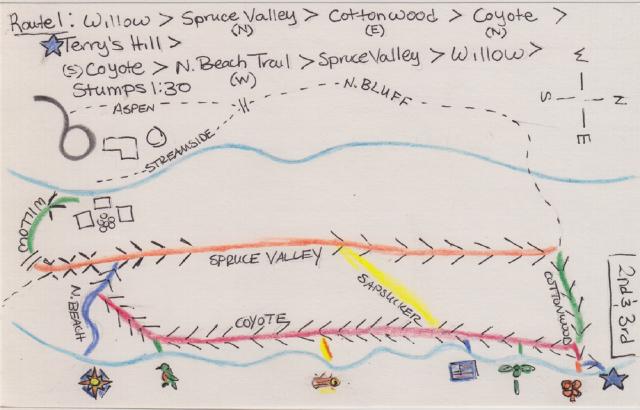 Route 1: Willow > Spruce Valley > Cottonwood > Coyote >
(N) (E) (N)
Terry's Hill >
(S) Coyote > N. Beach Trail > Spruce Valley > Willow >
(W)
Stumps 1:30
ASPEN
N. BLUFF
STREAMSIDE
W
S N
E
WILLOW
SPRUCE VALLEY
SAPSUCKER
COTTONWOOD
N. BEACH
COYOTE
2nd & 3rd